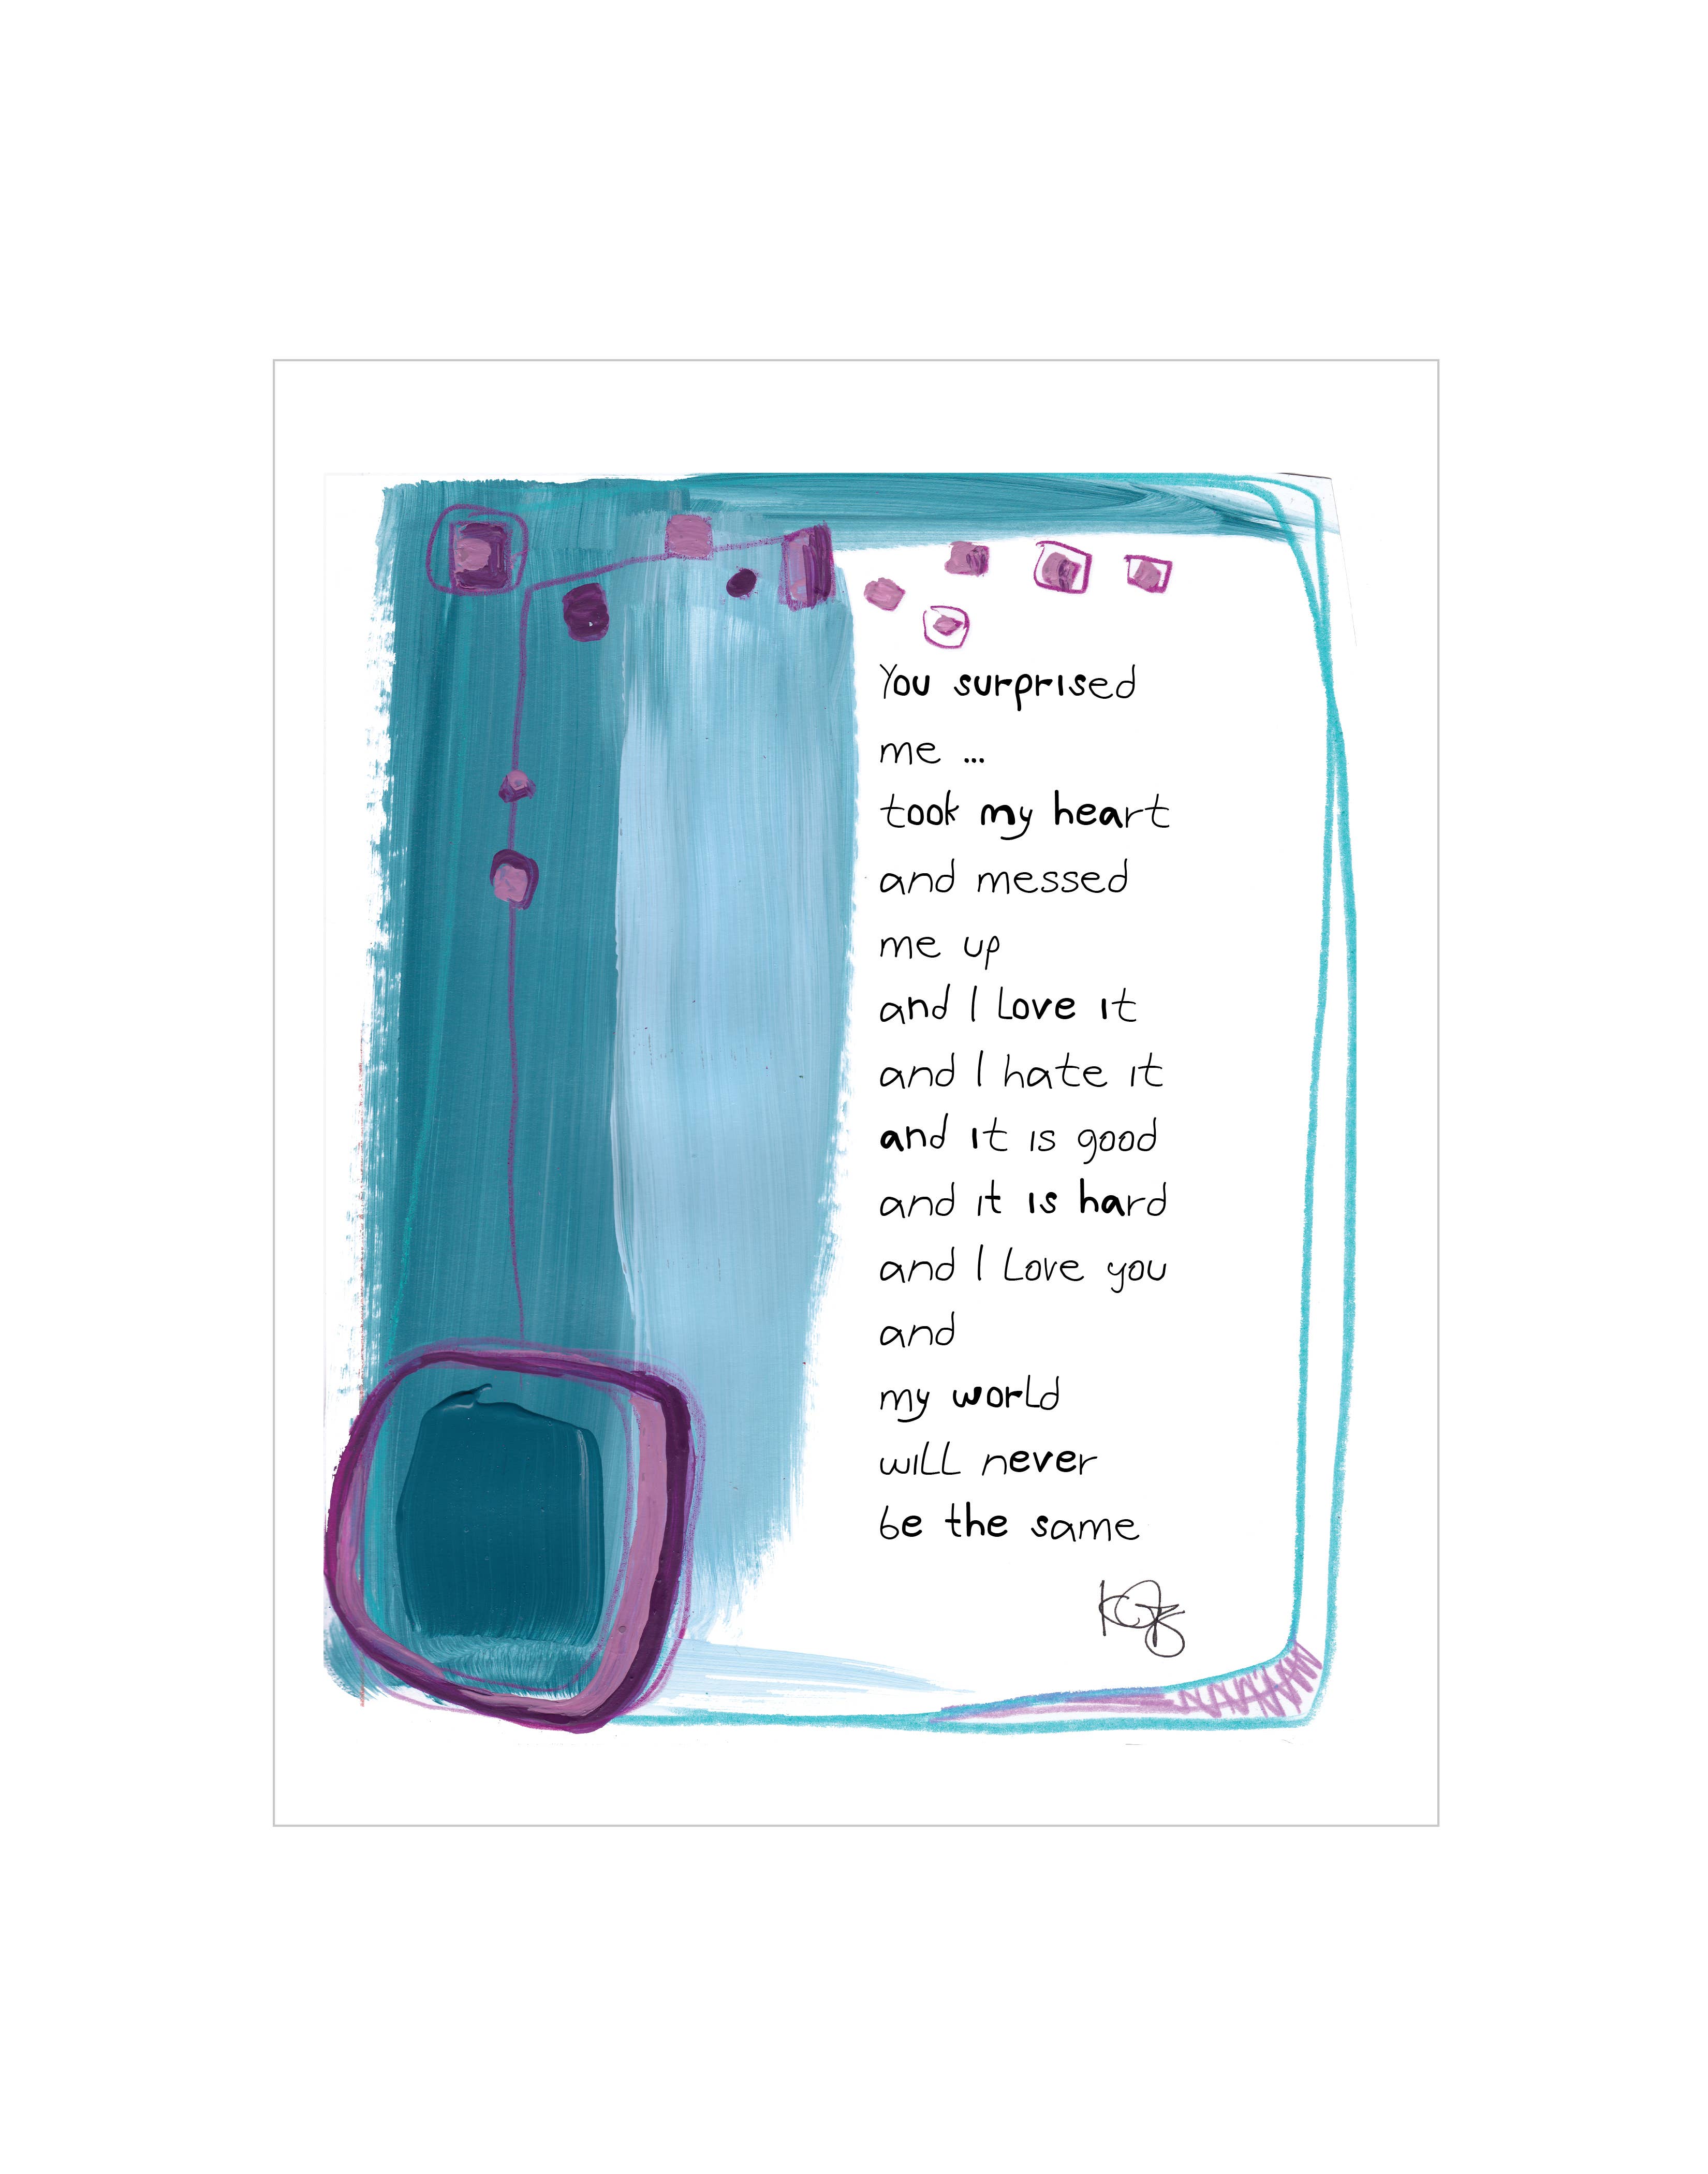 You surprised
me ...
took my heart
and messed
me up
and I Love it
and I hate it
and it is good
and it is hard
and I Love you
and
my world
will never
be the same